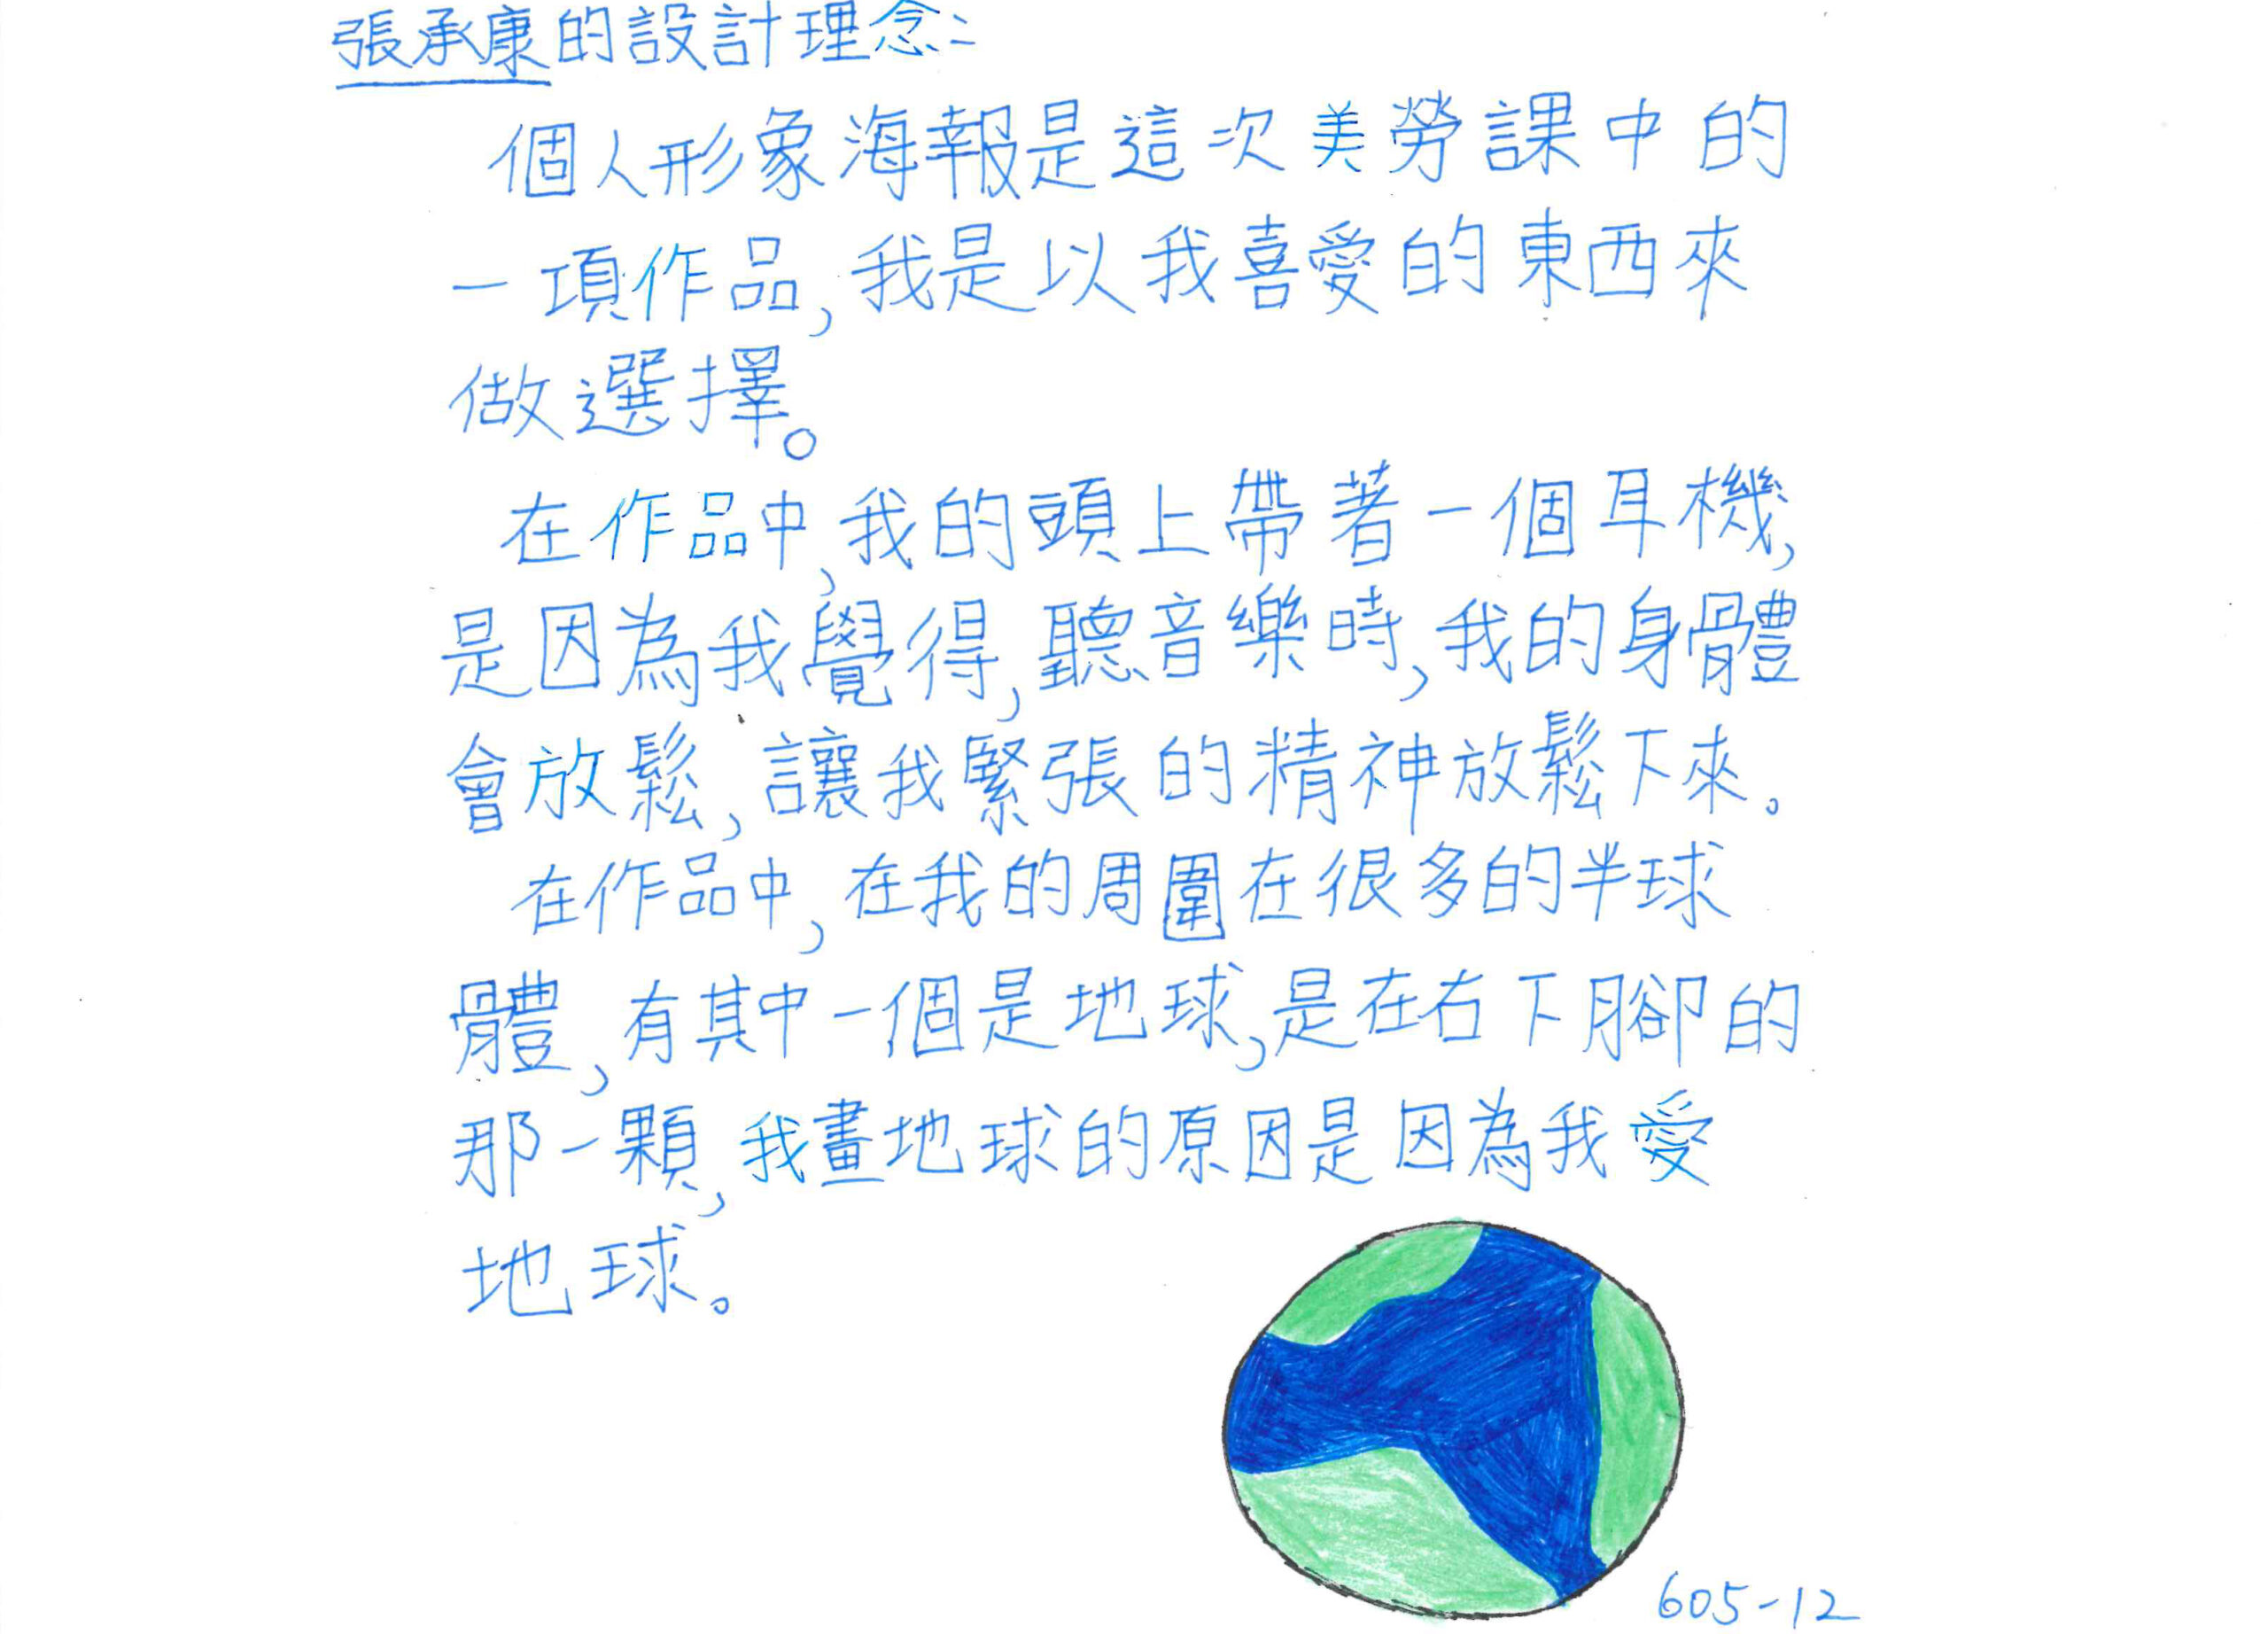 張承康的設計理念：
個人形象海報是這次美勞課中的
一項作品，我是以我喜愛的東西來
做選擇。
在作品中，我的頭上帶著一個耳機，
是因為我覺得，聽音樂時，我的身體
會放鬆，讓我緊張的精神放鬆下來。
在作品中，在我的周圍在很多的半球
體，有其中一個是地球，是在右下腳的
那一顆，我畫地球的原因是因為我愛
地球。
605-12